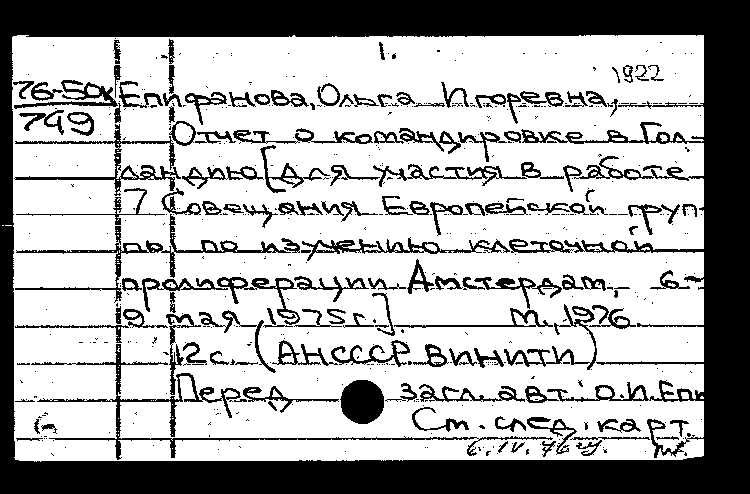 1.
1922
76-50к Епифанова, Ольга Игоревна,
749
Отчет о командировке в Гол-
ландию [для участия в работе
7 Совещания Европейской груп-
пы по изучению клеточной
пролиферации Амстердам, 6-
9 мая 1975г.]. М., 1976.
12с. (АН СССР. ВИНИТИ)
Перед загл. авт.: О.И.Епи
См. след. карт.
6
6.IV.76